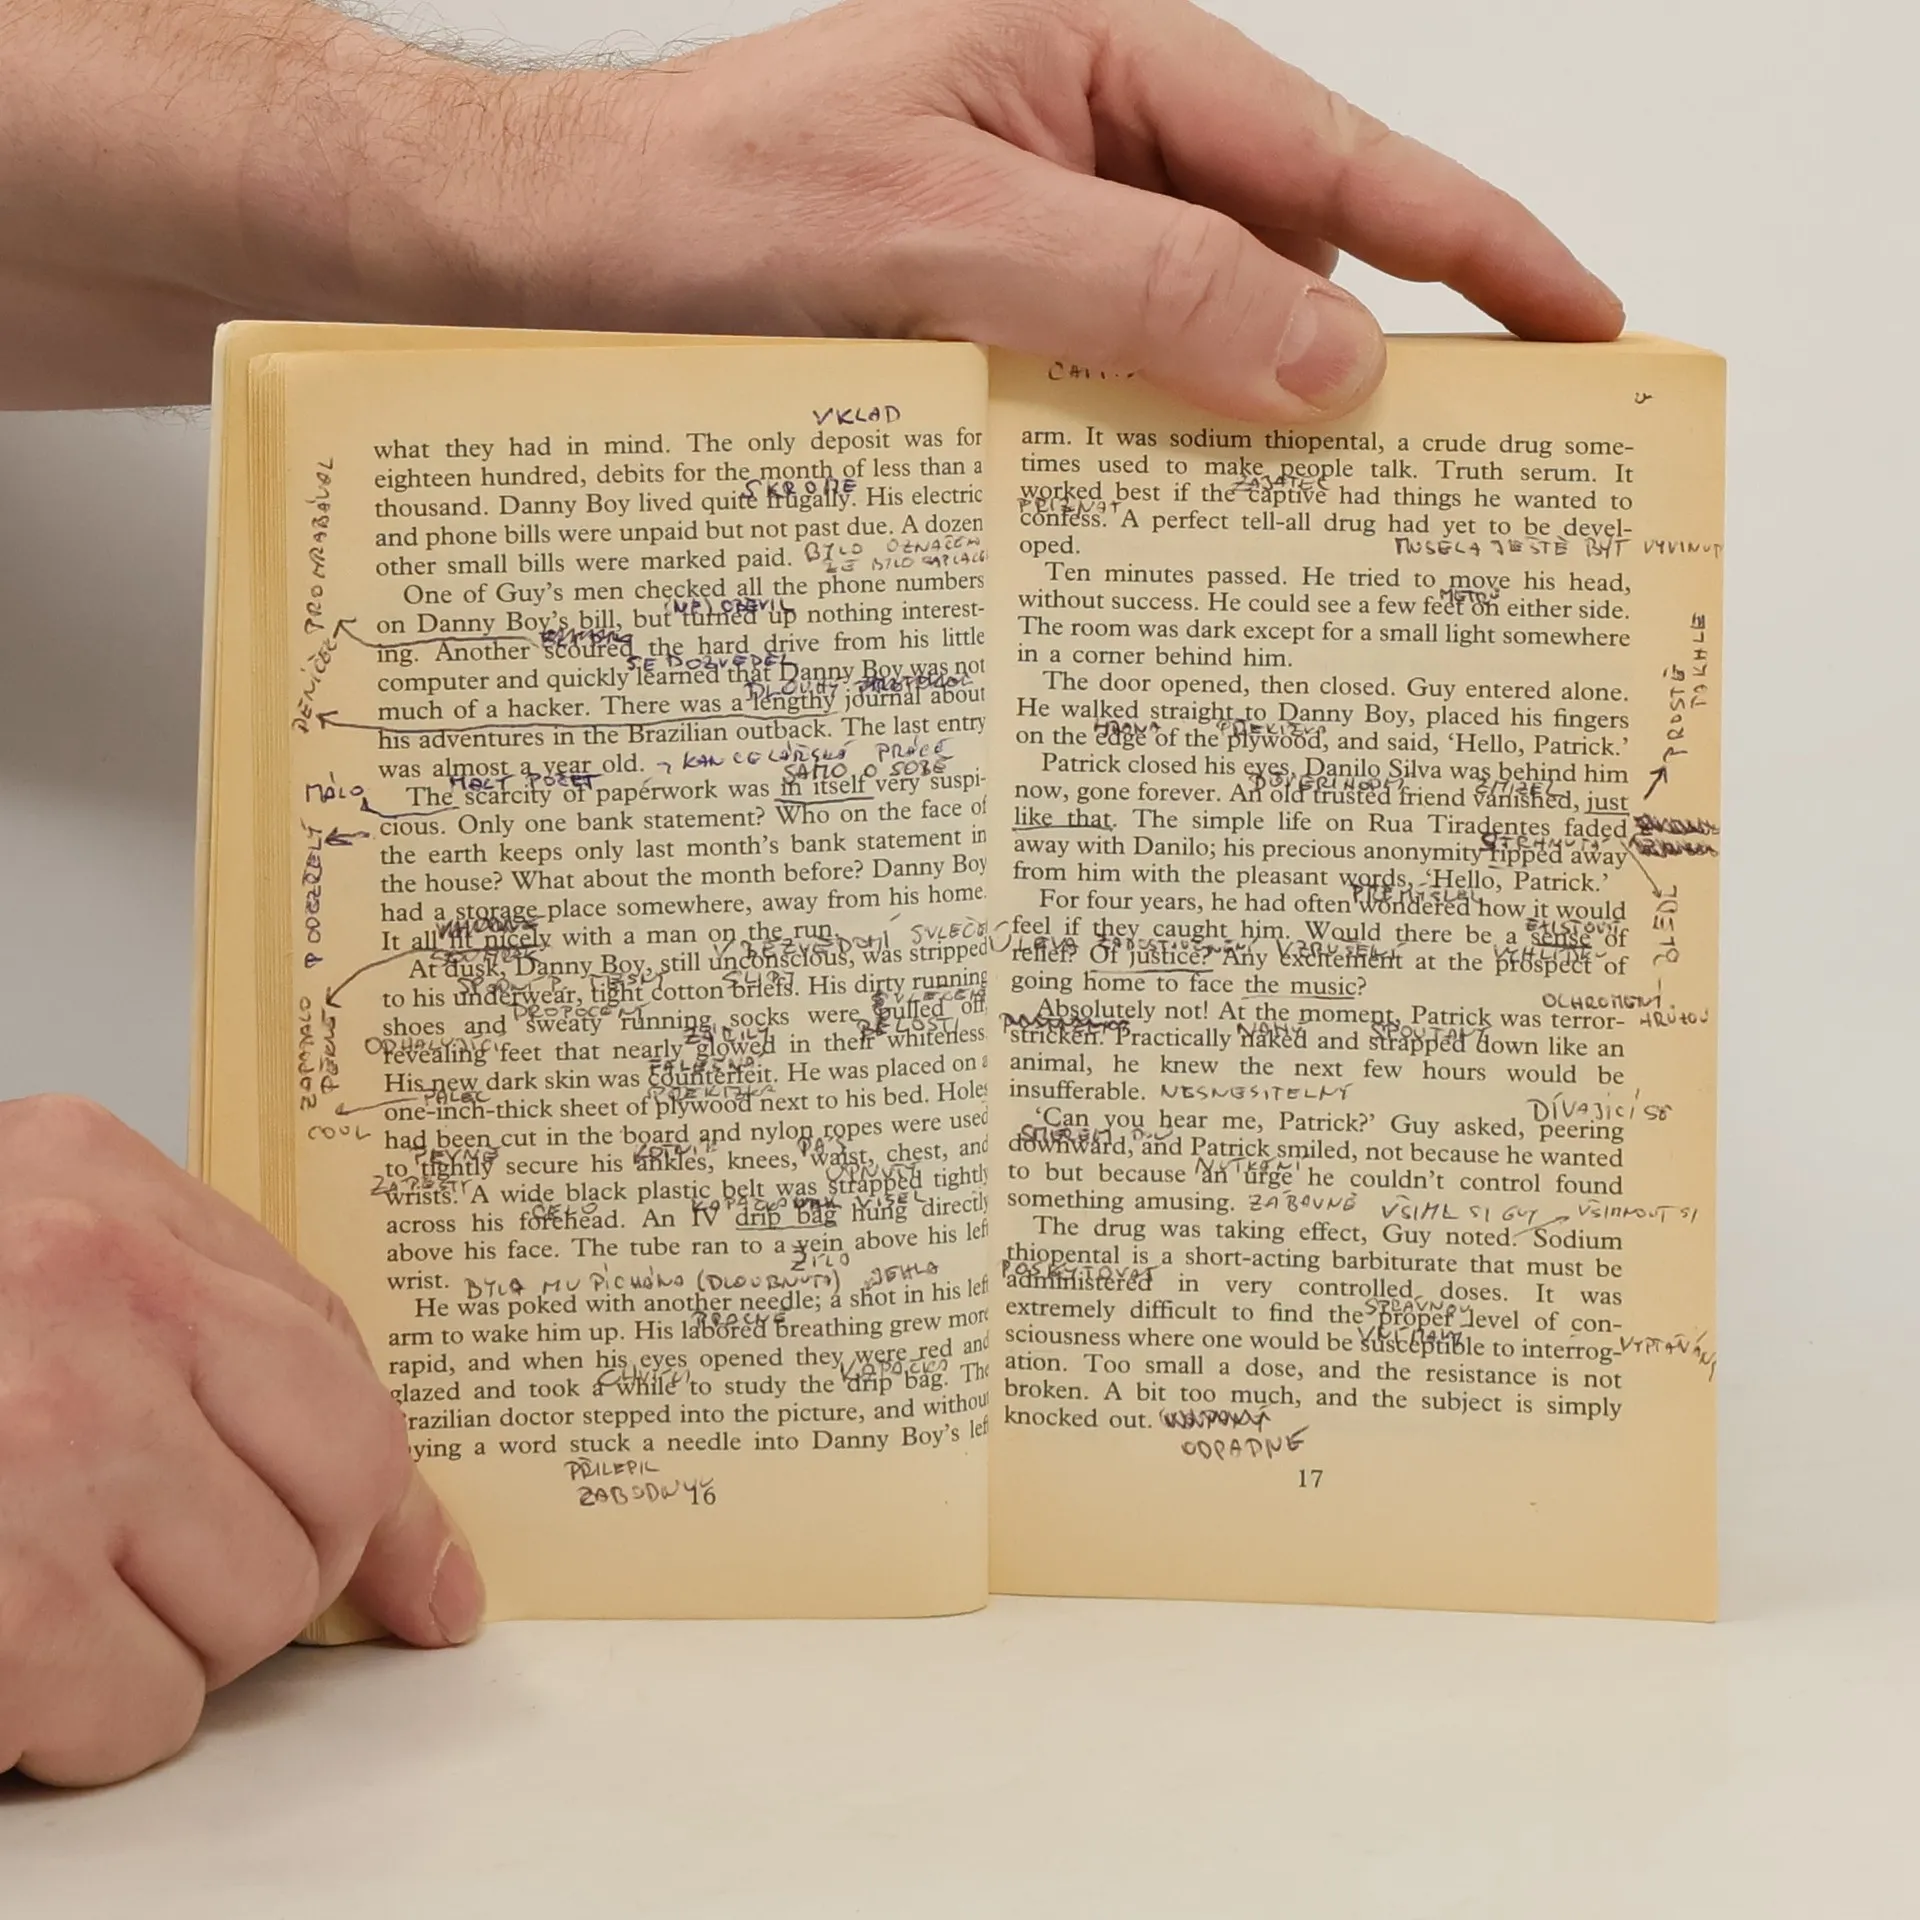 VKLAD
what they had in mind. The only deposit was for
eighteen hundred, debits for the month of less than a
SKROMĚ
thousand. Danny Boy lived quite frugally. His electric
and phone bills were unpaid but not past due. A dozen
other small bills were marked paid. BYLO
One of Guy's men checked all the phone numbers
on Danny Boy's bill, but turned up nothing interest-
ing. Another scoured the hard drive from his little
SE DOZVEDEL
computer and quickly learned that Danny Boy was not
DLOUHÝ
much of a hacker. There was a lengthy journal about
his adventures in the Brazilian outback. The last entry
was almost a year old. KANCELÁŘSKÁ PRÁCE
MALÝ POČET SAMO O SOBĚ
The scarcity of paperwork was in itself very suspi-
cious. Only one bank statement? Who on the face of
the earth keeps only last month's bank statement in
the house? What about the month before? Danny Boy
had a storage place somewhere, away from his home.
It all fit nicely with a man on the run.
V BEZVĚDOMÍ
At dusk, Danny Boy, still unconscious, was stripped
SLIPY
to his underwear, tight cotton briefs. His dirty running
shoes and sweaty running socks were pulled off,
revealing feet that nearly glowed in their whiteness.
FALEŠNÁ
His new dark skin was counterfeit. He was placed on a
PALEC
one-inch-thick sheet of plywood next to his bed. Holes
had been cut in the board and nylon ropes were used
PEVNĚ PAS
to tightly secure his ankles, knees, waist, chest, and
ZAPĚSTÍ
wrists. A wide black plastic belt was strapped tightly
ČELO VISEL
across his forehead. An IV drip bag hung directly
above his face. The tube ran to a vein above his left
ŽÍLO
wrist. BYLA MU PÍCHÁNA (DLOUBNUTA) JEHLA
He was poked with another needle; a shot in his left
arm to wake him up. His labored breathing grew more
rapid, and when his eyes opened they were red and
glazed and took a while to study the drip bag. The
razilian doctor stepped into the picture, and without
ying a word stuck a needle into Danny Boy's left
PŘILEPIL
16
MÁLO
PODEZŘELÝ
arm. It was sodium thiopental, a crude drug some-
times used to make people talk. Truth serum. It
ZAJATEC
worked best if the captive had things he wanted to
PŘIZNAT
confess. A perfect tell-all drug had yet to be devel-
oped. MUSELA JEŠTĚ BÝT VYVINUT
Ten minutes passed. He tried to move his head,
without success. He could see a few feet on either side.
The room was dark except for a small light somewhere
in a corner behind him.
The door opened, then closed. Guy entered alone.
He walked straight to Danny Boy, placed his fingers
HRANA
on the edge of the plywood, and said, 'Hello, Patrick.'
Patrick closed his eyes. Danilo Silva was behind him
ZMIZEL
now, gone forever. An old trusted friend vanished, just
like that. The simple life on Rua Tiradentes faded
away with Danilo; his precious anonymity ripped away
from him with the pleasant words, 'Hello, Patrick.'
PŘEMÝŠLEL
For four years, he had often wondered how it would
feel if they caught him. Would there be a sense of
ÚLEVA
relief? Of justice? Any excitement at the prospect of
going home to face the music?
Absolutely not! At the moment, Patrick was terror-
stricken. Practically naked and strapped down like an
animal, he knew the next few hours would be
insufferable. NESNESITELNÝ
DÍVAJÍCÍ SE
'Can you hear me, Patrick?' Guy asked, peering
downward, and Patrick smiled, not because he wanted
NUTKÁNÍ
to but because an urge he couldn't control found
something amusing. ZÁBAVNĚ VŠIML SI GUY VŠIMNOUT SI
The drug was taking effect, Guy noted. Sodium
thiopental is a short-acting barbiturate that must be
POSKYTOVAT
administered in very controlled doses. It was
extremely difficult to find the proper level of con-
sciousness where one would be susceptible to interrog-
ation. Too small a dose, and the resistance is not
broken. A bit too much, and the subject is simply
knocked out.
ODPADNE
17
PROSTĚ
TAKHLE